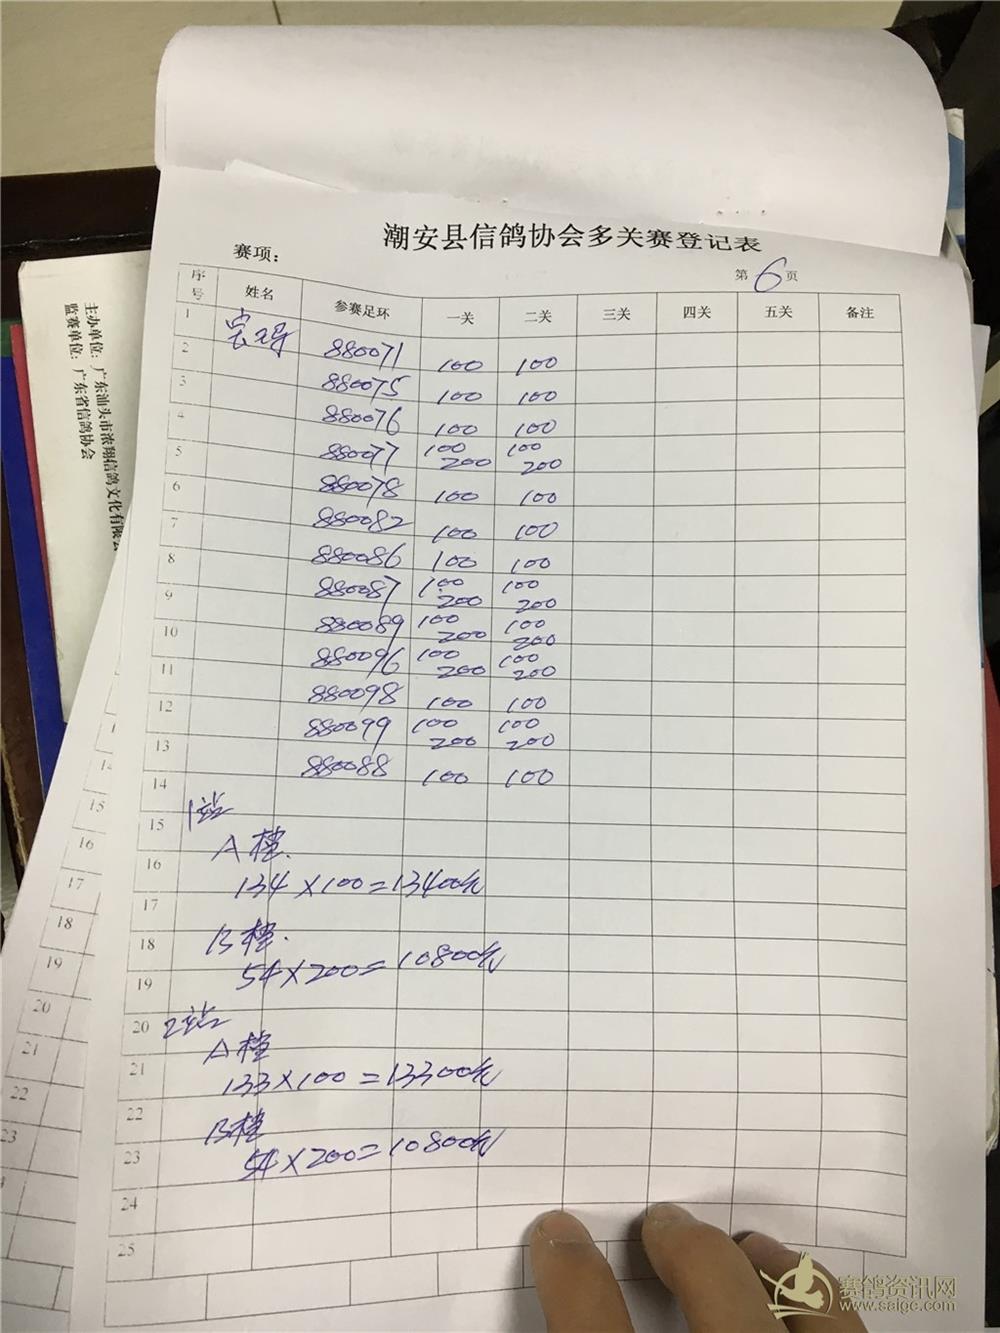 潮安县信鸽协会多关赛登记表
赛项：
第6页
序号 姓名 参赛足环 一关 二关 三关 四关 五关 备注
1 880071 100 100
2 880075 100 100
3 880076 100 100
4 880077 100 200 100 200
5 880078 100 100
6 880082 100 100
7 880086 100 100
8 880087 100 200 100 200
9 880089 100 200 100 200
10 880096 100 200 100 200
11 880098 100 100
12 880099 100 200 100 200
13 880088 100 100
14
1站
15
A档.
16
134×100=13400元
17
18
B档.
54×200=10800元
19
20
2站
A档
21
133×100=13300元
22
B档
23
54×200=10800元
24
25
主办单位：广东汕头市浓翔信鸽文化有限公
监赛单位：广东省信鸽协会
14
15
16
17
18
19
20
21
22
23
赛鸽资讯网
www.saigc.com